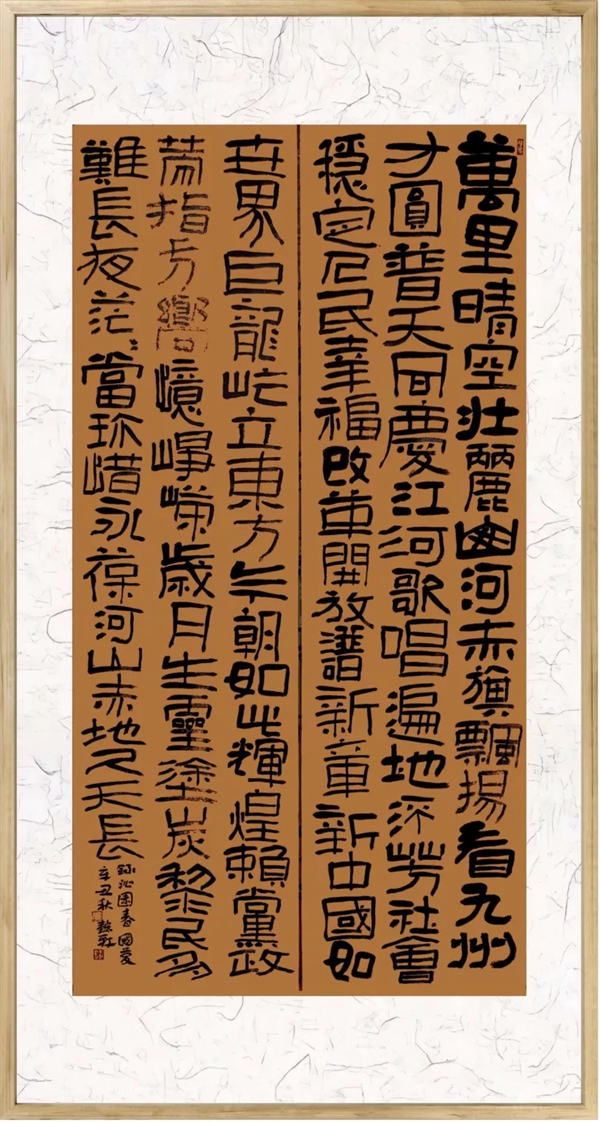 萬里晴空壯麗山河赤旗飄揚看九州
方圓普天同慶江河歌唱遍地芬芳社會
穩定人民幸福改革開放譜新章新中國如
世界巨龍屹立東方今朝如此輝煌賴黨政
指方嚮憶崢嶸歲月生靈塗炭黎民多
難長夜茫〻當珍惜永葆河山赤地久天長
錄沁園春國慶
辛丑秋